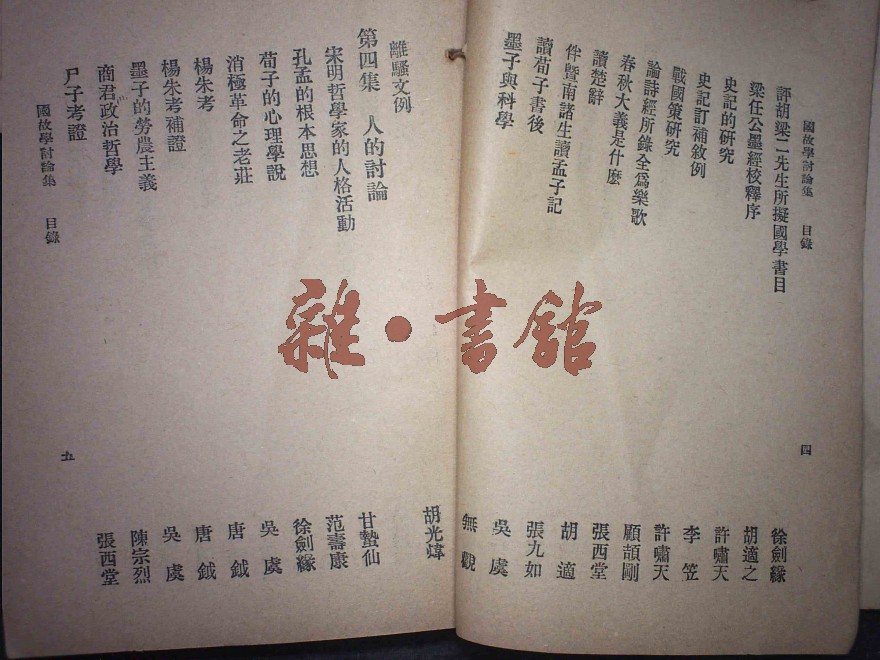 國故學討論集 目錄 四
評胡梁二先生所擬國學書目 徐劍緣
梁任公墨經校釋序 胡適之
史記的硏究 許嘯天
史記訂補敘例 李笠
戰國策硏究 許嘯天
論詩經所錄全爲樂歌 顧頡剛
春秋大義是什麽 張西堂
讀楚辭 胡適
伴暨南諸生讀孟子記 張九如
讀荀子書後 吳虞
墨子與科學 無觀
離騷文例 胡光煒
第四集 人的討論
宋明哲學家的人格活動 甘蟄仙
孔孟的根本思想 范壽康
荀子的心理學說 徐劍緣
消極革命之老莊 吳虞
楊朱考 唐鉞
楊朱考補證 唐鉞
墨子的勞農主義 吳虞
商君政治哲學 陳宗烈
尸子考證 張西堂
國故學討論集 目錄 五
雜·書館